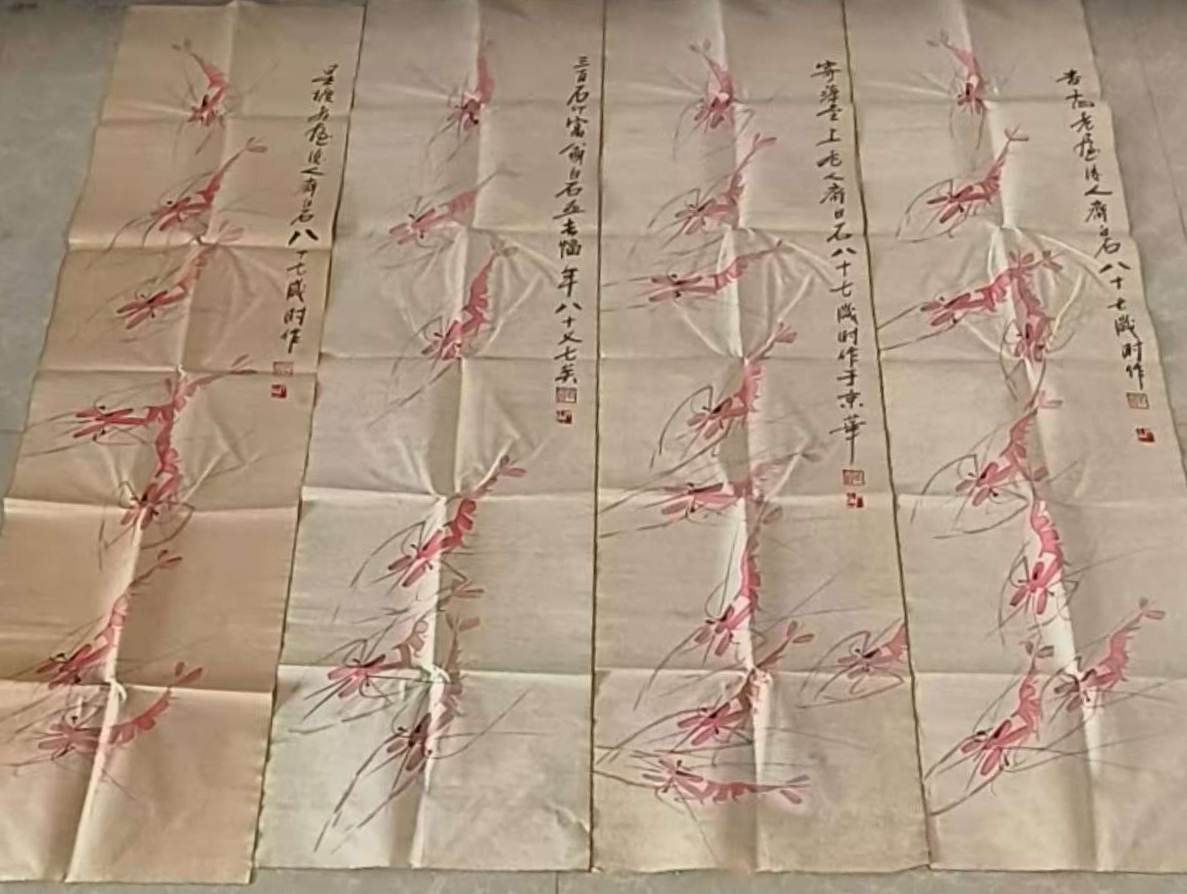 杏老屋後人齊白石八十七歲时作
寄萍堂上老人齊白石八十七歲时作于京華
三百石印富翁白石年八十又七矣
星塘老屋後人齊白石八十七歲时作